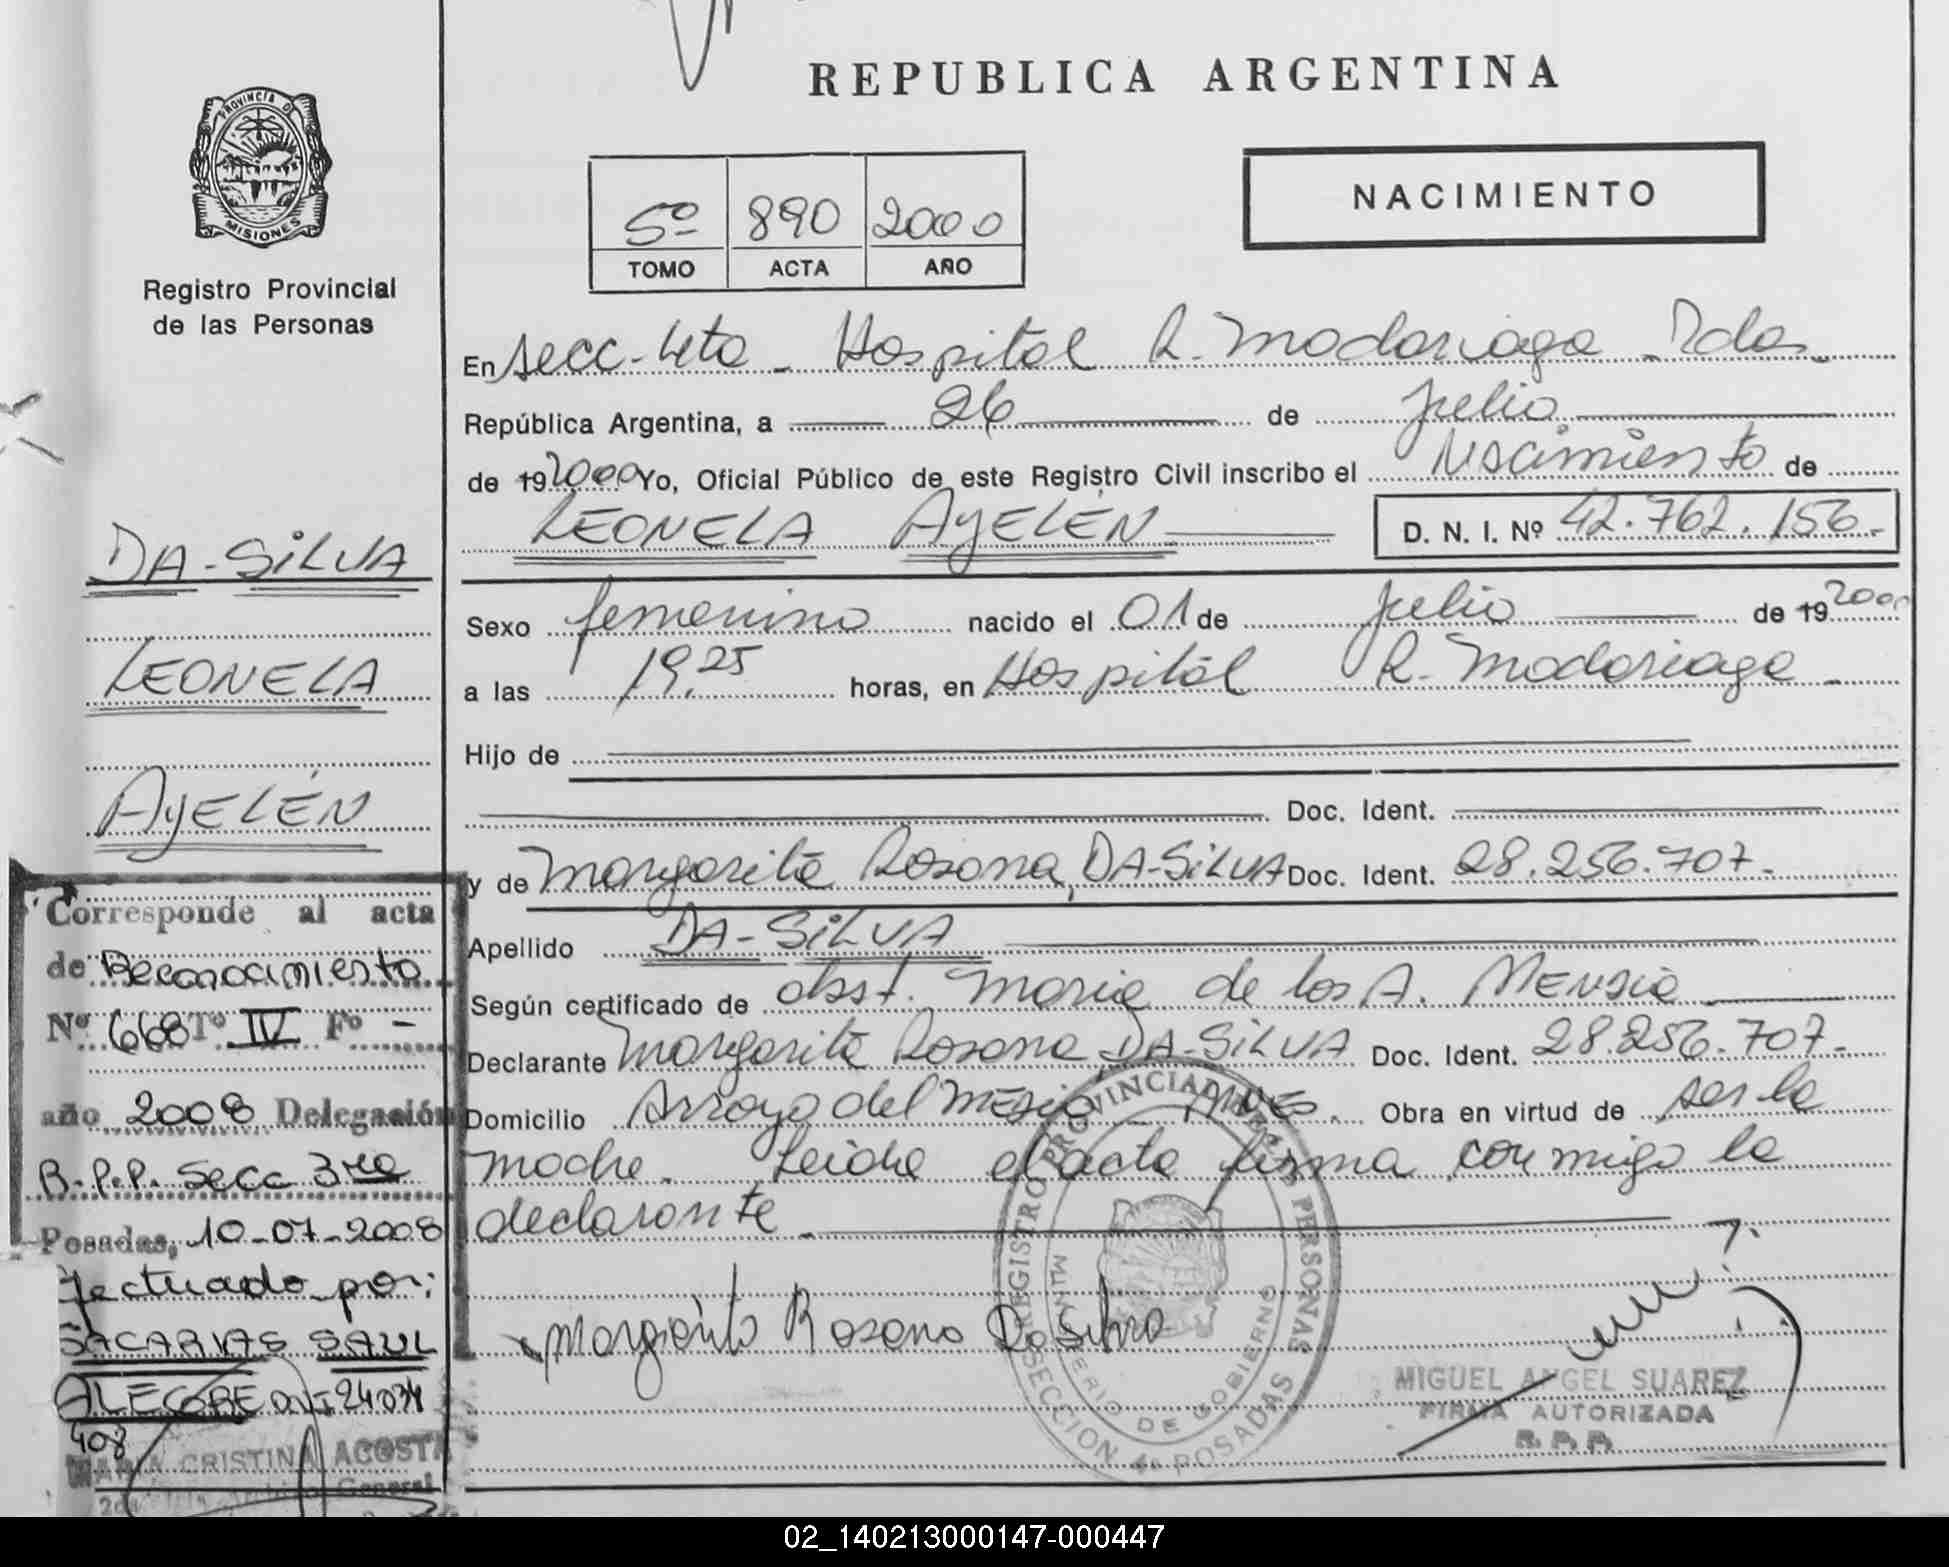 REPUBLICA ARGENTINA
PROVINCIA D
MISIONES
Registro Provincial
de las Personas
5º 890 2000
TOMO ACTA AÑO
NACIMIENTO
En secc-4ta - Hospital R. Madariaga - Pdas -
República Argentina, a 26 de julio
de 19 2000 Yo, Oficial Público de este Registro Civil inscribo el Nacimiento de
LEONELA AYELÉN D. N. I. Nº 42.762.156.-
Sexo femenino nacido el 01 de julio de 19 2000
a las 19,25 horas, en Hospital R. Madariaga -
Hijo de
Doc. Ident.
y de Margarita Rosana, DA-SILVA Doc. Ident. 28.256.707.-
Apellido DA-SILVA
Según certificado de obst. Maria de los A.
Declarante Margarita Rosana DA-SILVA Doc. Ident. 28.256.707.-
Domicilio Arroyo del Obra en virtud de ser la
madre. Leida el acta firma conmigo la
declarante.
Margarita Rosana Da Silva
REGISTRO PROVINCIAL DE LAS PERSONAS
MINISTERIO DE GOBIERNO
SECCION 4ª POSADAS
MIGUEL ANGEL SUAREZ
FIRMA AUTORIZADA
R. P. P.
DA-SILVA
LEONELA
AYELÉN
Corresponde al acta
de Reconocimiento
Nº 668 Tº IV Fº -
año 2008 Delegación
R.P.P. Secc 3ra
Posadas, 10-07-2008
fectuado por:
SACARIAS SAUL
ALEGRE DNI 24034
408
MARIA CRISTINA ACOSTA
General
02_140213000147-000447